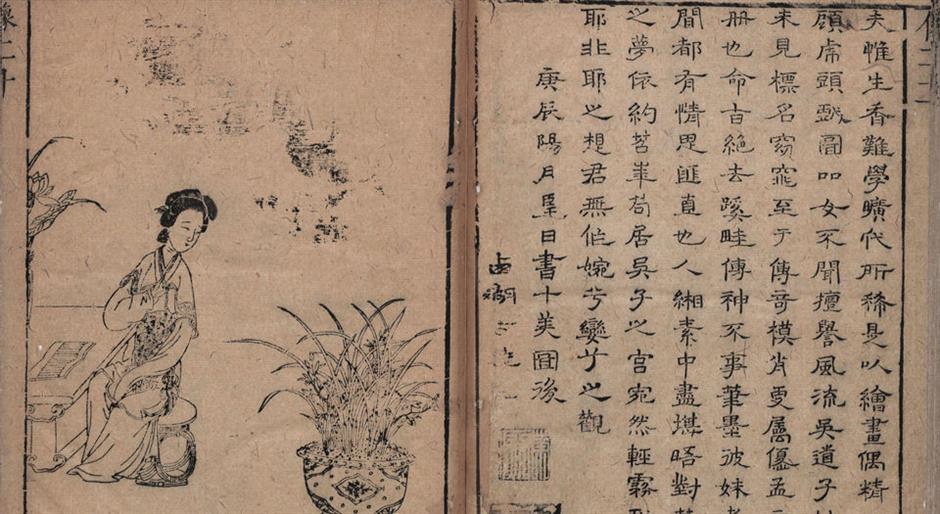 夫惟生香難學曠代所稀是以繪畫偶精
顧虎頭戲圖叩女不聞擅譽風流吳道子
未見標名窈窕至于傳奇模肖更屬優孟
册也命旨絕去蹊畦傳神不事筆墨彼姝
閒都有情思匪直也人緗素中盡堪晤對
之夢依約苕華苟居吳子之宮宛然輕霧
耶非耶之想君無作婉兮孌兮之觀
庚辰陽月望日書十美圖後
西湖
像二十